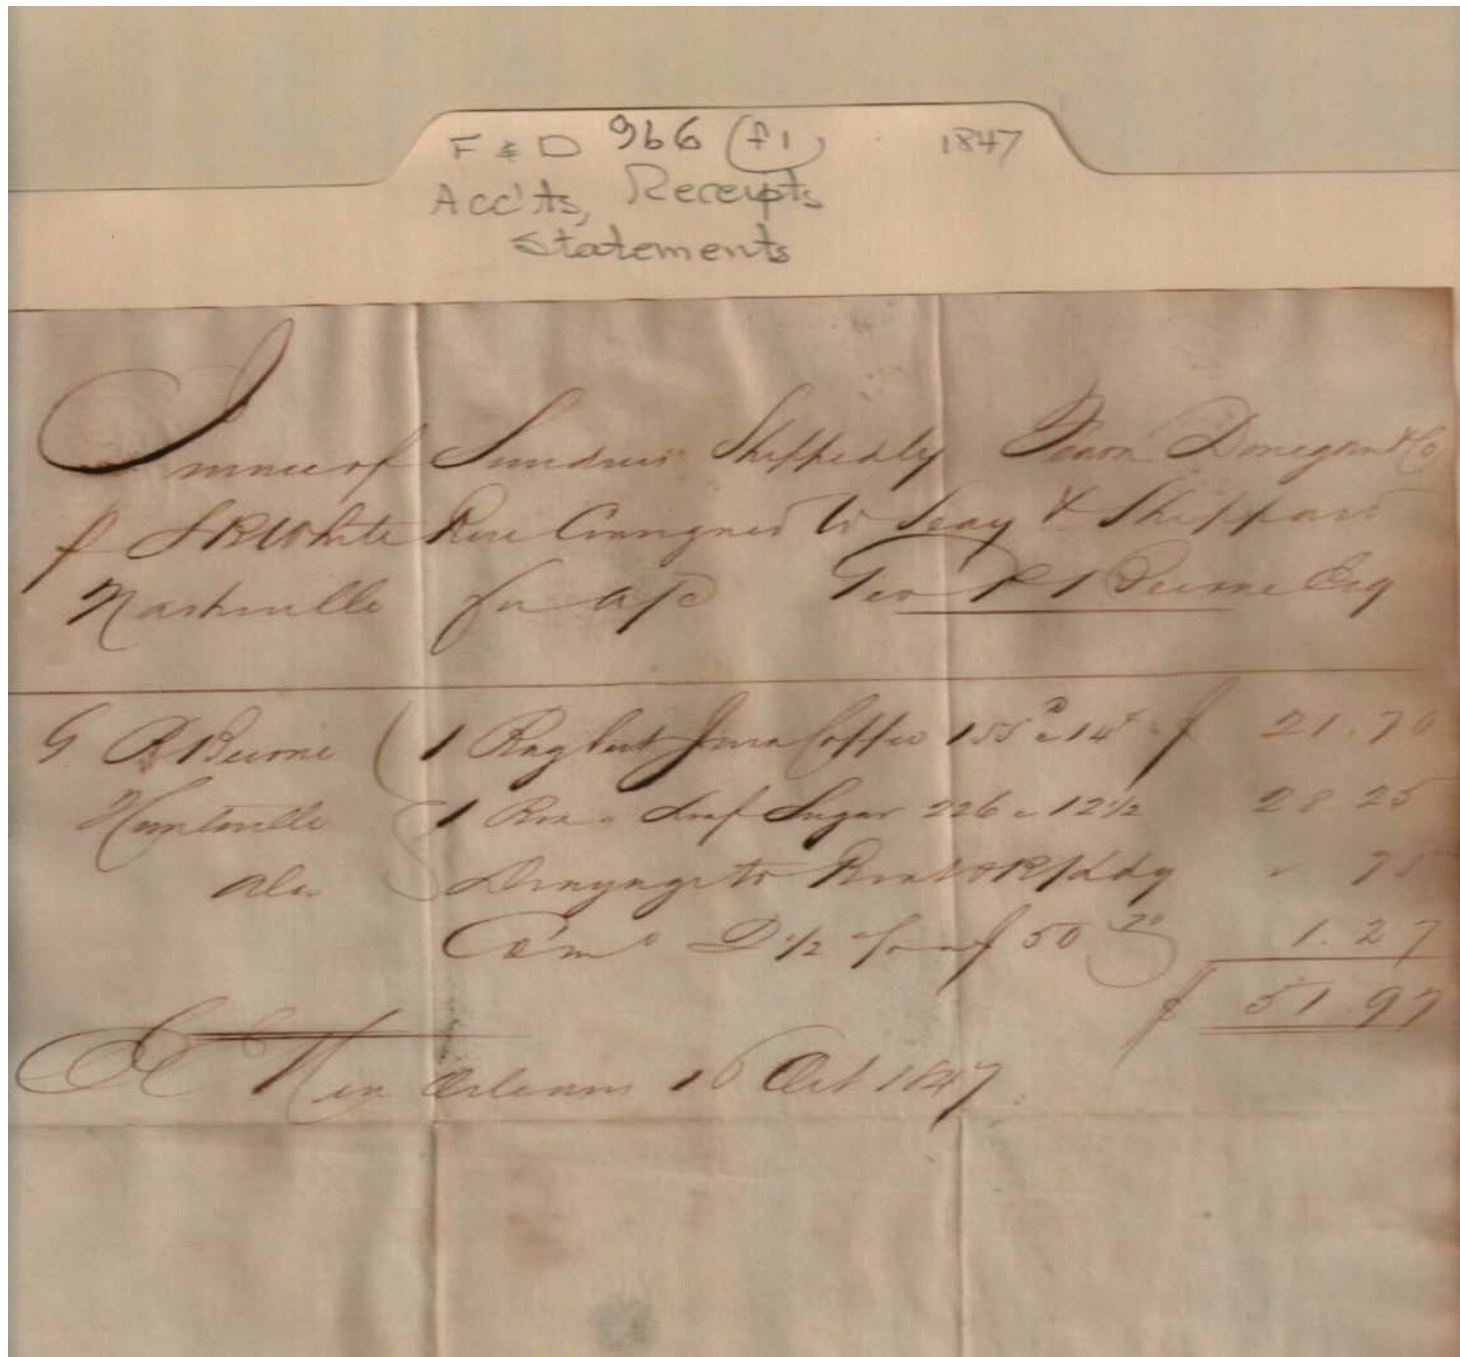 F & D 966 (f1) 1847
Acc'ts, Receipts
Statements
Invoice of Sundries Shipped by Fearn Donegan & Co
p S R White Rose Consigned to Seay & Shippard
Nashville for a/c Geo P Beirne Esq
G P Beirne 1 Bag best Java Coffee 155 lb a 14¢ $ 21.70
Huntsville 1 Box " Loaf Sugar 226 a 12 1/2 28 25
Ala Drayage to Boat 75
Com 2 1/2 50 70 1.27
$ 51.97
New Orleans 16 Oct 1847